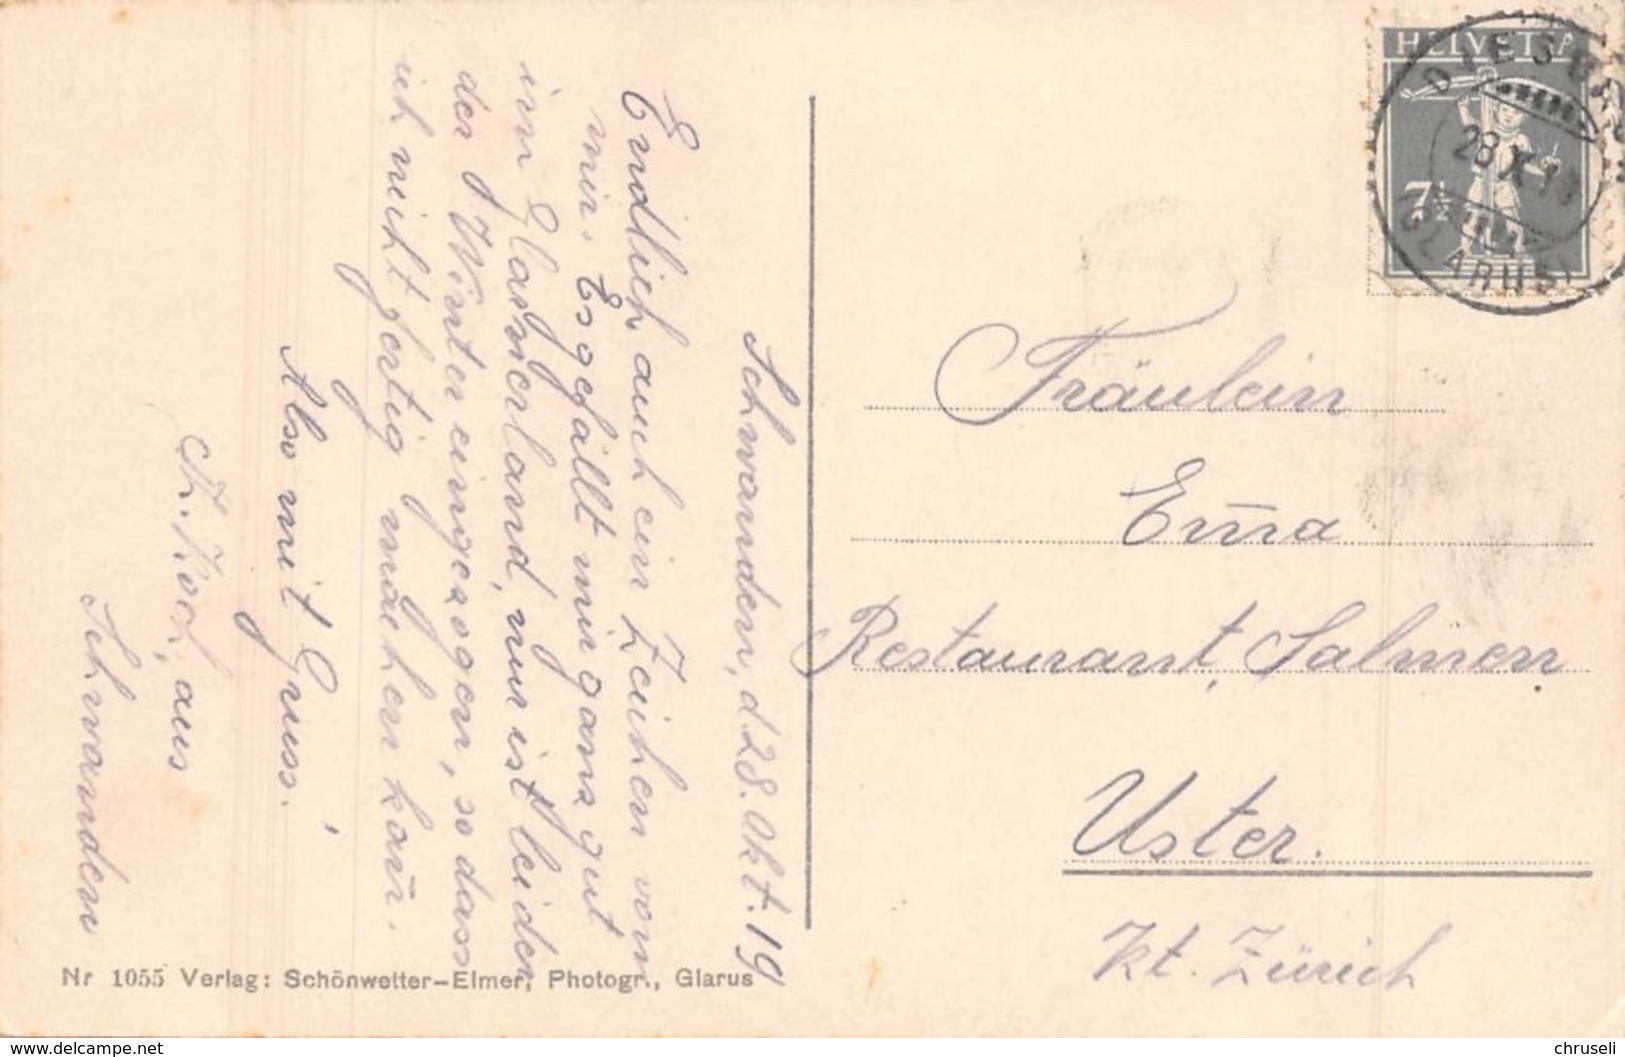 Schwanden, d 28. Okt. 19
Endlich auch ein Zeichen von
mir. Es gefällt mir ganz gut
im Glarnerland, nur ist leider
der Winter eingezogen, so dass
ich nicht fertig machen kañ.
Also mit Gruss!
Koch, aus
Schwanden
Nr 1055 Verlag: Schönwetter-Elmer, Photogr., Glarus
HELVETIA
7½
28 X
(GLARUS)
Fräulein
Em̄a
Restaurant, Salmen
Uster.
Kt. Zürich
www.delcampe.net
chruseli